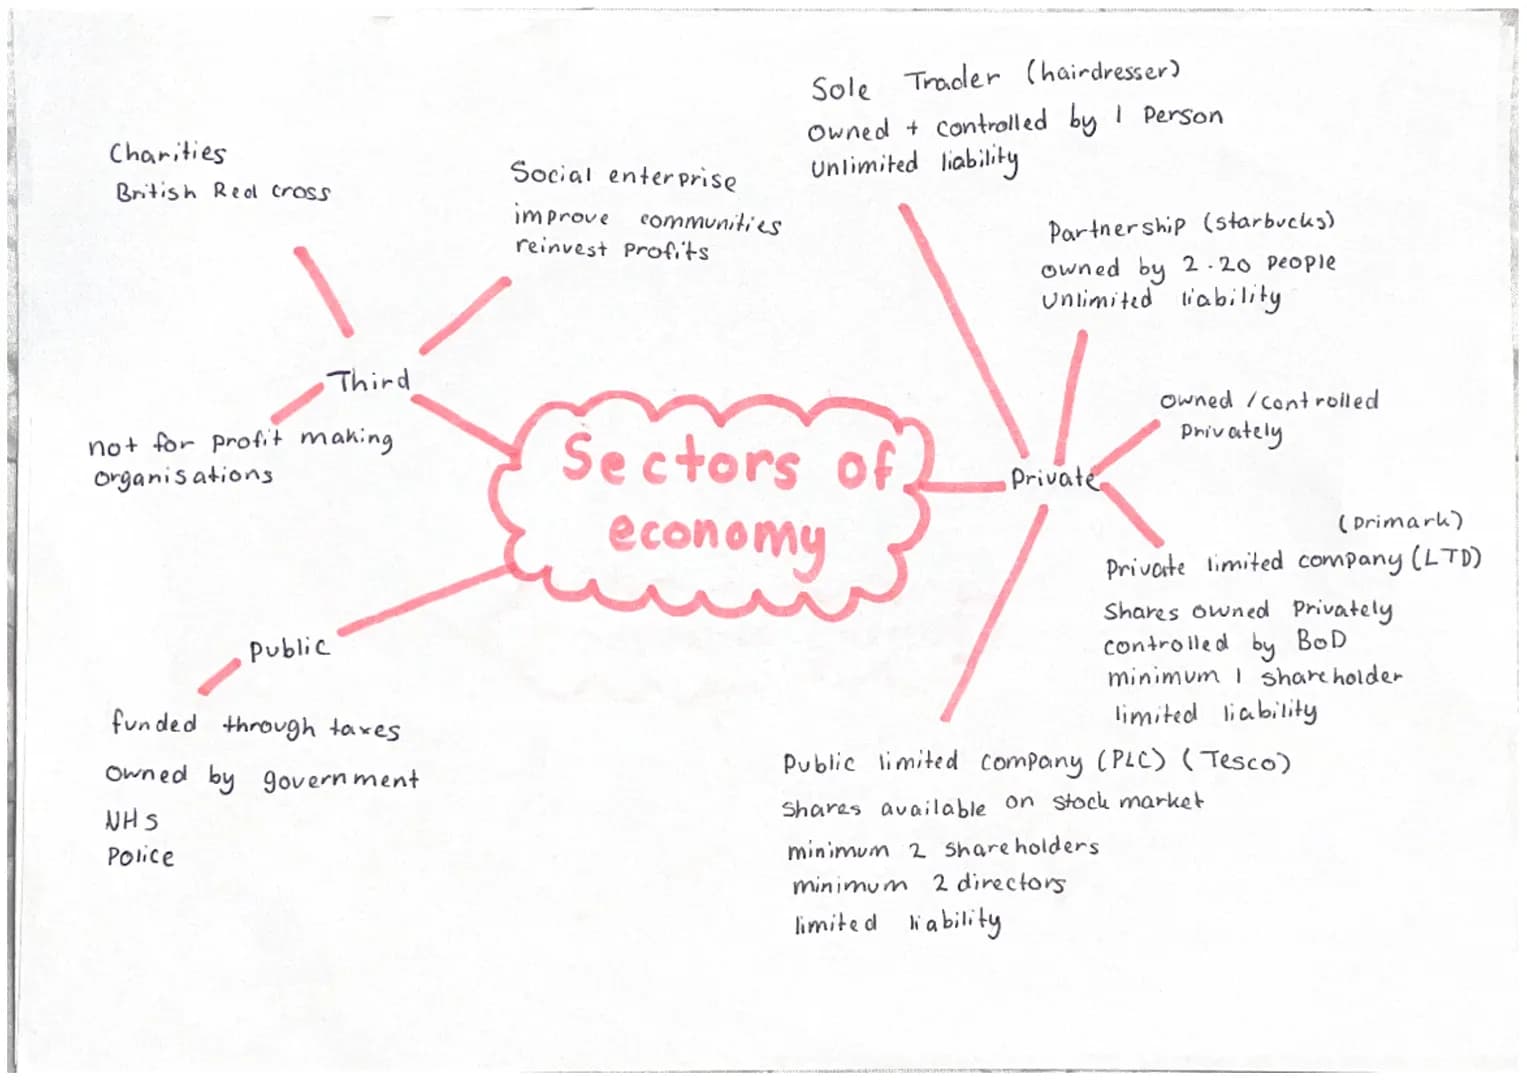 Sectors of
economy
Third
Charities
British Red cross
Social enterprise
improve communities
reinvest profits
not for profit making
organisations
Public
funded through taxes
owned by government
NHS
Police
Private
Sole Trader (hairdresser)
owned + controlled by 1 Person
Unlimited liability
Partnership (starbucks)
owned by 2-20 people
Unlimited liability
owned / controlled
privately
(primark)
Private limited company (LTD)
Shares owned Privately
controlled by BoD
minimum 1 shareholder
limited liability
Public limited company (PLC) (Tesco)
shares available on stock market
minimum 2 shareholders
minimum 2 directors
limited liability